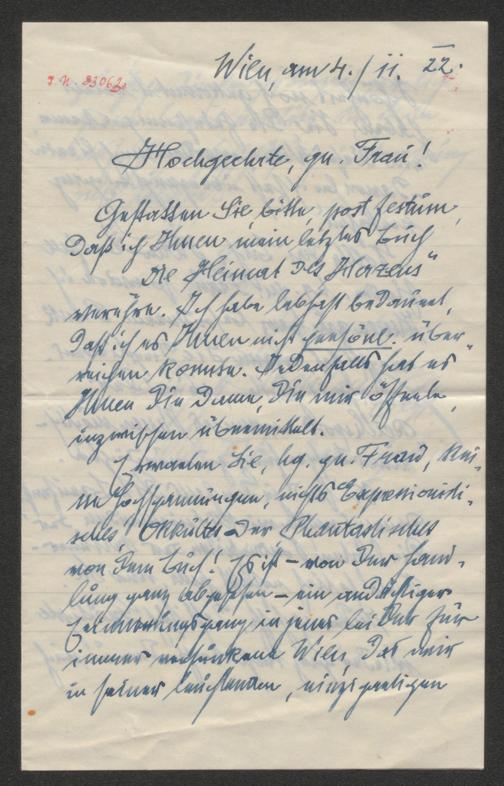 J. N. 23062
Wien, am 4./11. 22.
Hochgeehrte, gn. Frau!
Gestatten Sie, bitte, post festum,
daß ich Ihnen mein letztes Buch
"Die Heimat des Herzens"
verehre. Ich habe lebhaft bedauert,
daß ich es Ihnen nicht persönl. über-
reichen konnte. Jedenfalls hat es
Ihnen die Dame, die mir öffnete,
inzwischen übermittelt.
Erwarten Sie, hg. gn. Frau, kei-
ne Hochspannungen, nichts Expressionisti-
sches, Okkultes oder Phantastisches
von dem Buch! Es ist – von der Hand-
lung ganz abgesehen – ein andächtiger
Erinnerungsgang in jenes leider für
immer versunkene Wien, das wir
in seiner leuchtenden, einzigartigen